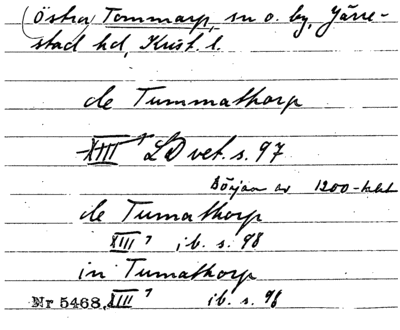 (Östra) Tommarp, sn o. by, Järre-
stad hd, Krist. l.
de Tummathorp
XIII ? LD vet. s. 97
Början av 1200-talet
de Tumathorp
XIII ? ib. s. 98
in Tumathorp
Nr 5468. XIII ? ib. s. 98